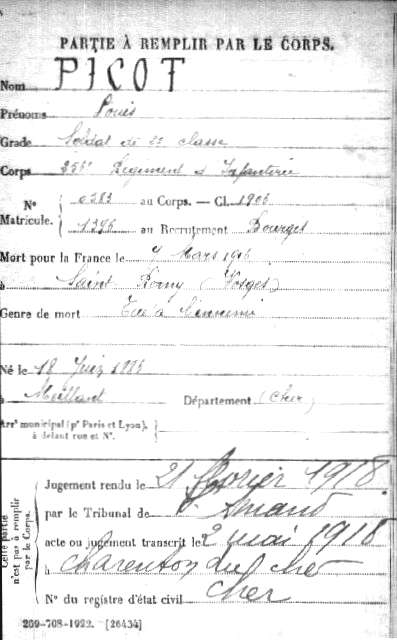 PARTIE À REMPLIR PAR LE CORPS.
Nom PICOT
Prénoms Louis
Grade Soldat de 2e classe
Corps Régiment d'Infanterie
N° 0383 au Corps. — Cl. 1906
Matricule. 1396 au Recrutement Bourges
Mort pour la France le Mars
à Saint Remy (Vosges)
Genre de mort Tué à l'ennemi
Né le 18 Juin
à Meillant Département (Cher)
Arrt municipal (pr Paris et Lyon),
à défaut rue et N°.
Cette partie n'est pas à remplir par le Corps.
Jugement rendu le 21 février 1918
par le Tribunal de St Amand
acte ou jugement transcrit le 2 mai 1918
à Charenton du Cher
Cher
N° du registre d'état civil
269-708-1922. [26434]